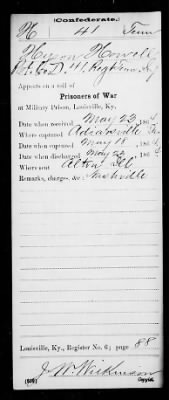 (Confederate.)
H 41 Tenn
Hyson Howell
Co. D, 41 Reg't Tenn. Inf
Appears on a roll of
Prisoners of War
at Military Prison, Louisville, Ky.
Date when received May 23, 186
Where captured Adairsville
Date when captured May 18, 186
Date when discharged May 186
Where sent Alton Ill
Remarks, charges, &c Nashville
Louisville, Ky., Register No. 6; page 88
J. W. Wilkinson
Copyist.